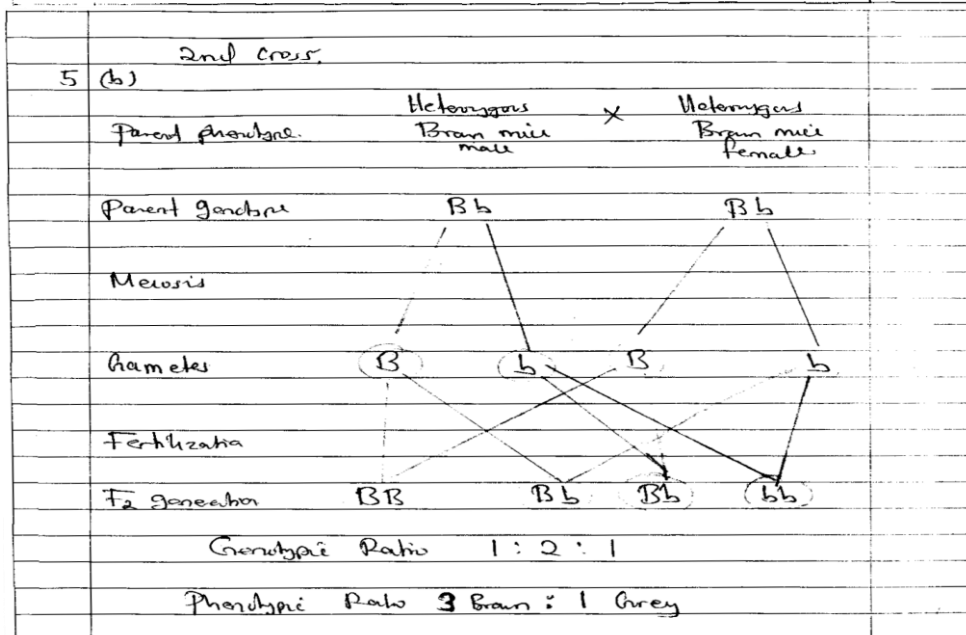 2nd cross.
5 (b)
Heterozygous × Heterozygous
Parent phenotype. Brown mice Brown mice
male female
Parent genotype Bb Bb
Meiosis
Gametes B b B b
Fertilization
F2 generation BB Bb Bb bb
Genotypic Ratio 1 : 2 : 1
Phenotypic Ratio 3 Brown : 1 Grey